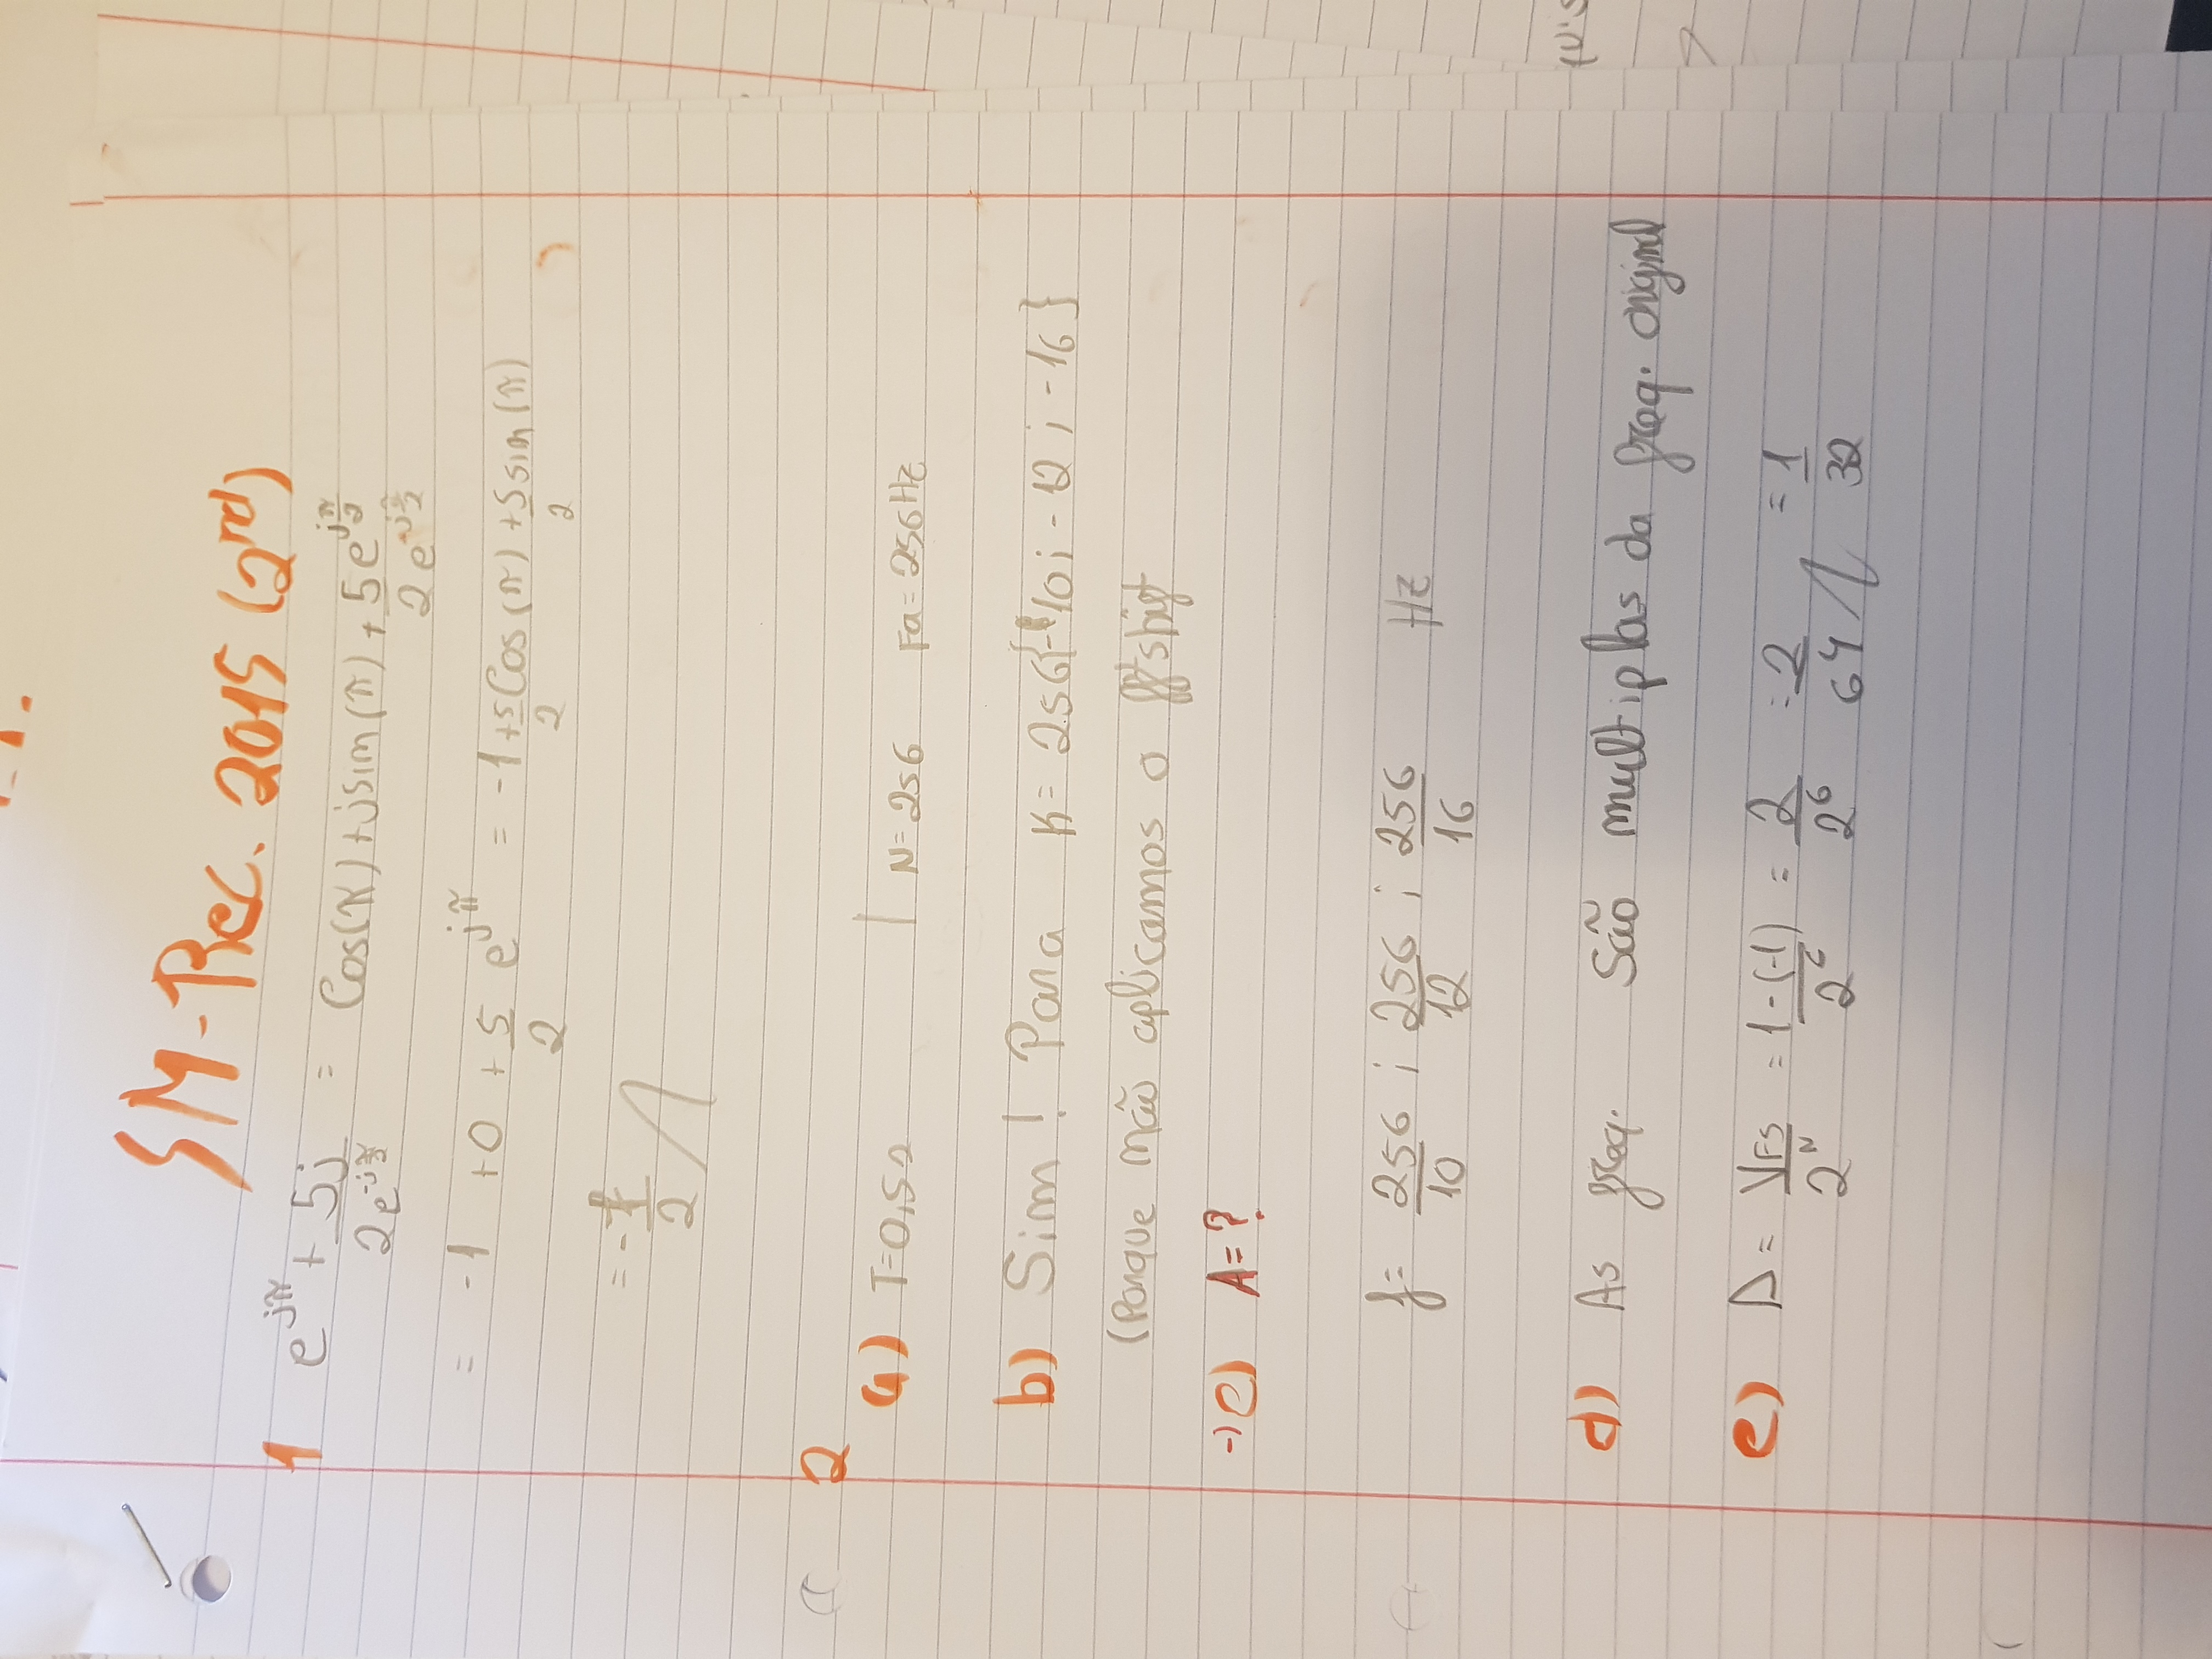 SM-Rec. 2015 (2rd)
1 e^{jπ} + 5j/2e^{-jπ/2} = Cos(π) + jsin(π) + 5e^{jπ/2}/2e^{-jπ/2}
= -1 + 0 + 5/2 e^{jπ} = -1 + 5/2 Cos(π) + 5/2 sin(π)
= -7/2
2
a) T=0,5s | N=256 Fa=256Hz
b) Sim! Para K=256{-10; -12; -16}
(Porque não aplicamos o fftshift
→c) A=?
f= 256/10 ; 256/12 ; 256/16 Hz
d) As freq. são multiplas da freq. original
e) Δ = VFS/2^N = 1-(-1)/2^6 = 2/2^6 = 2/64 = 1/32